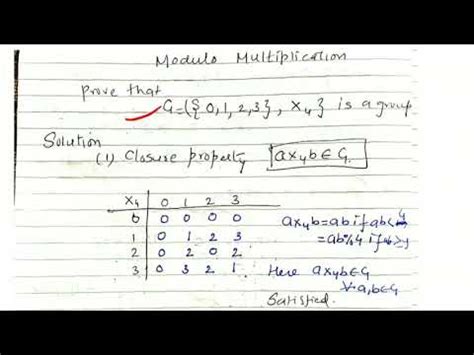 Modulo Multiplication
Prove that
G=({0,1,2,3}, X4} is a group
Solution
(1) Closure property a×4b∈G.
×4 0 1 2 3
0 0 0 0 0
1 0 1 2 3
2 0 2 0 2
3 0 3 2 1
a×4b=ab if ab<4
=ab%4 if
Here a×4b∈G
∀ a,b∈G
Satisfied.